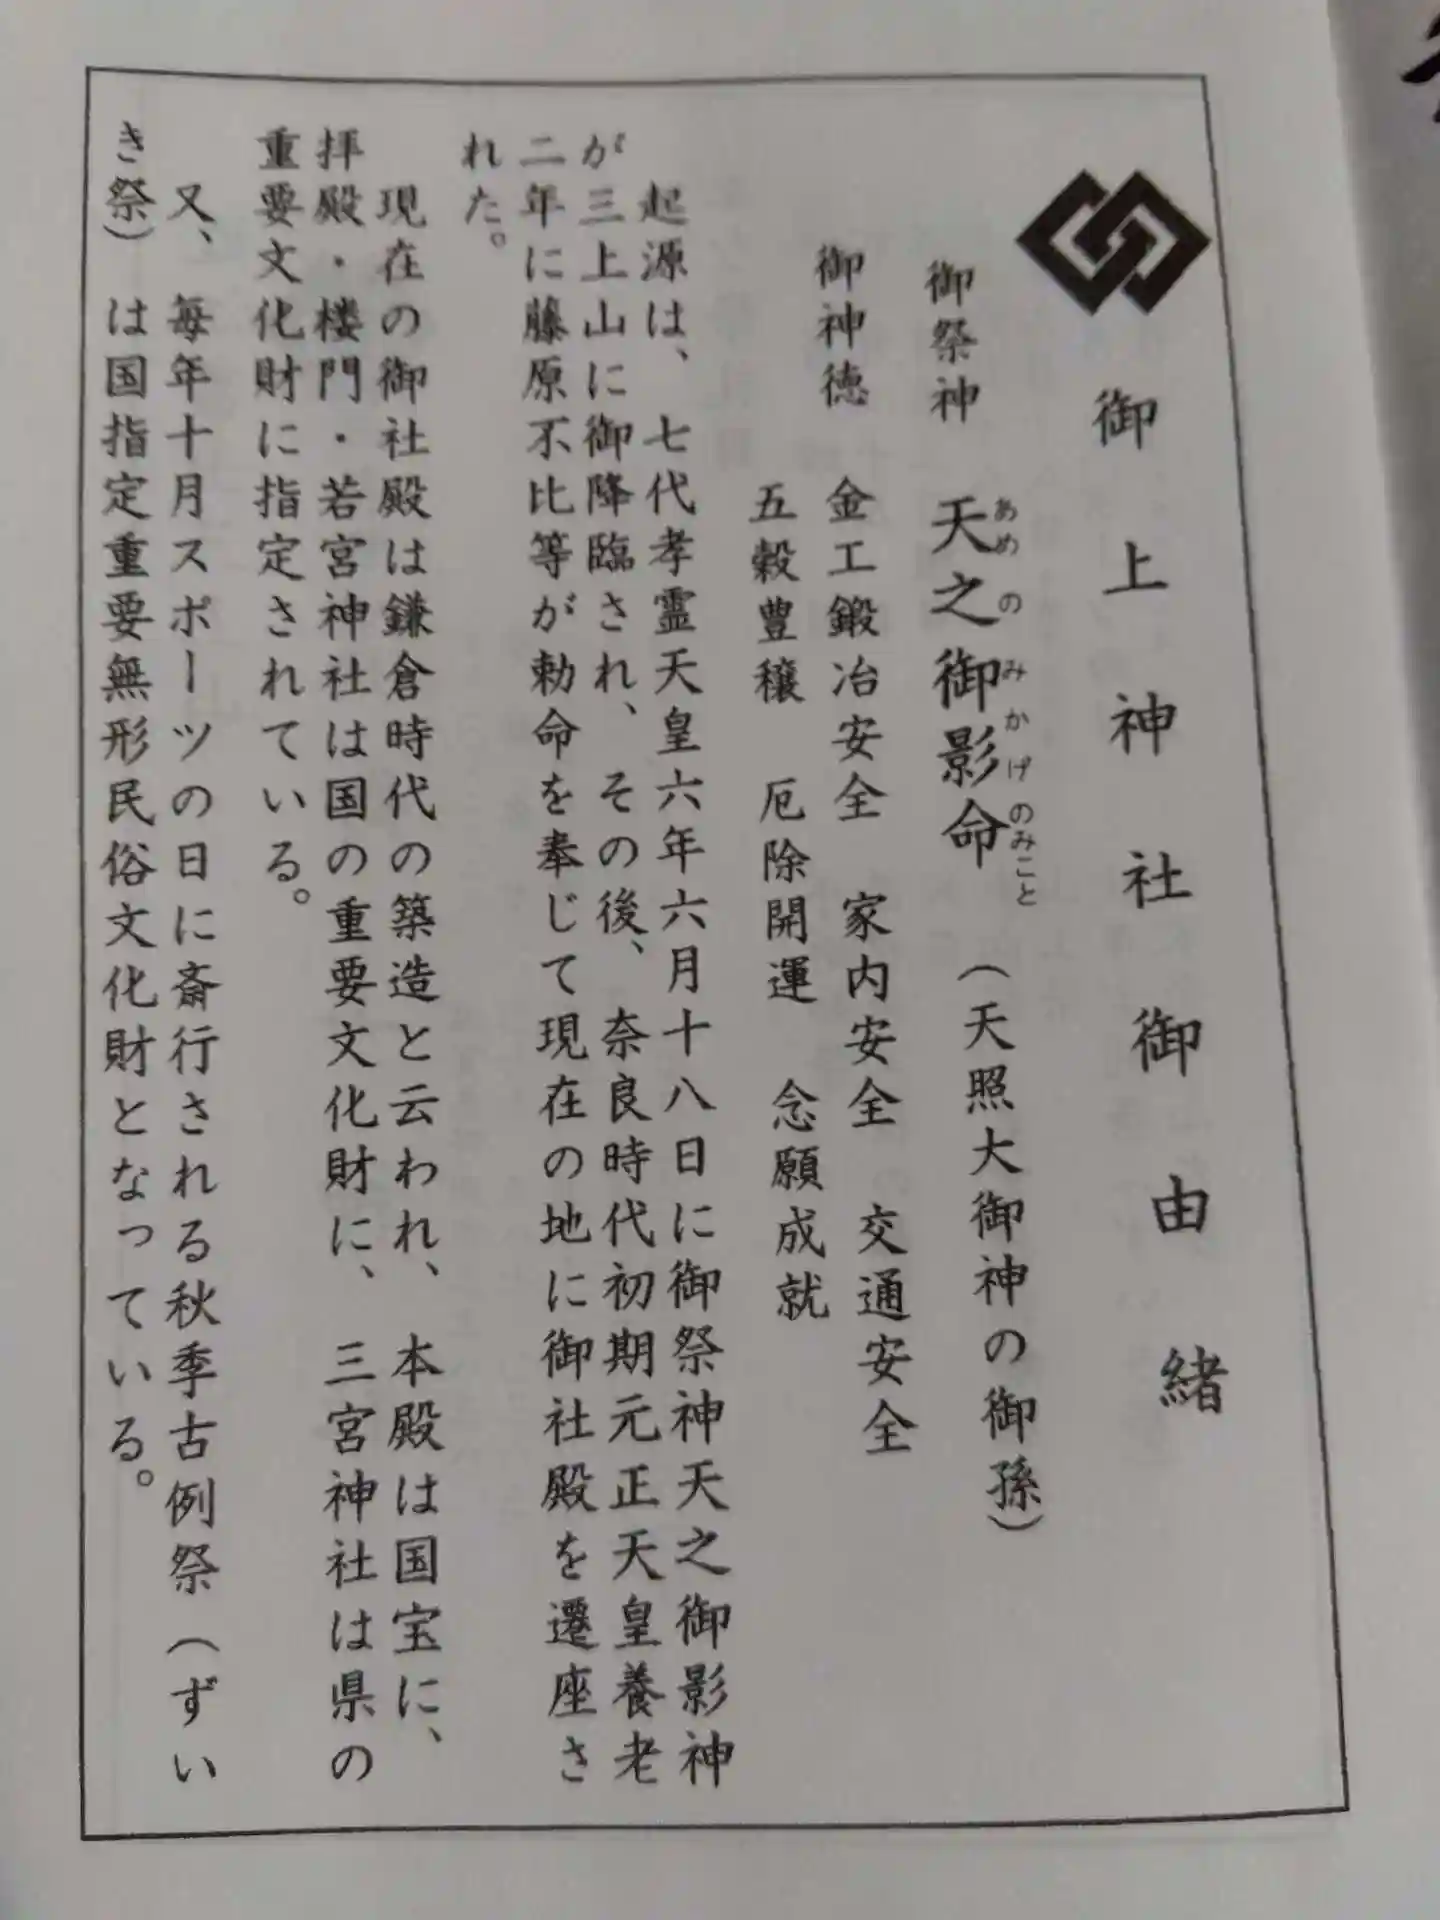 御上神社御由緒
御祭神 天之御影命 (天照大御神の御孫)
あめ の みかげのみこと
御神徳 金工鍛冶安全 家内安全 交通安全
五穀豊穣 厄除開運 念願成就
起源は、七代孝霊天皇六年六月十八日に御祭神天之御影神
が三上山に御降臨され、その後、奈良時代初期元正天皇養老
二年に藤原不比等が勅命を奉じて現在の地に御社殿を遷座さ
れた。
現在の御社殿は鎌倉時代の築造と云われ、本殿は国宝に、
拝殿・楼門・若宮神社は国の重要文化財に、三宮神社は県の
重要文化財に指定されている。
又、毎年十月スポーツの日に斎行される秋季古例祭(ずい
き祭)は国指定重要無形民俗文化財となっている。